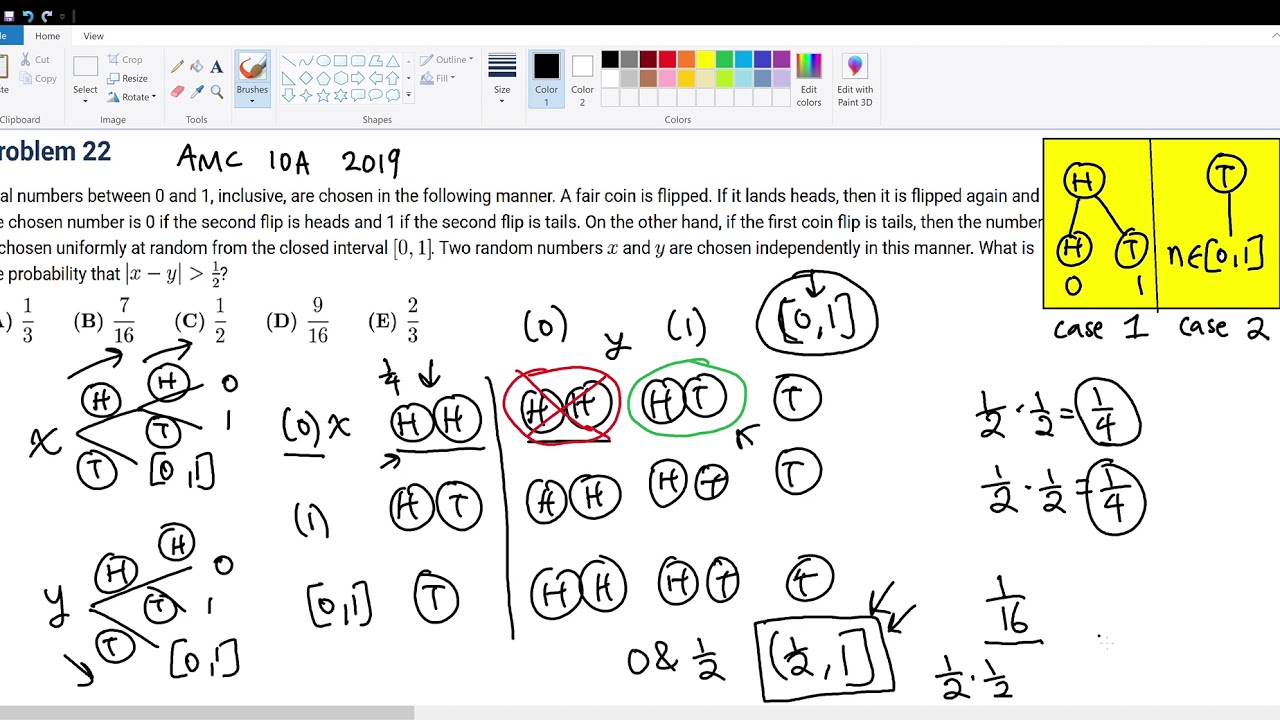 Home View
Cut
Copy
Clipboard
Select
Crop
Resize
Rotate
Image
A
Tools
Brushes
Shapes
Outline
Fill
Size
Color 1
Color 2
Colors
Edit colors
Edit with Paint 3D
roblem 22 AMC 10A 2019
al numbers between 0 and 1, inclusive, are chosen in the following manner. A fair coin is flipped. If it lands heads, then it is flipped again and
e chosen number is 0 if the second flip is heads and 1 if the second flip is tails. On the other hand, if the first coin flip is tails, then the number
chosen uniformly at random from the closed interval [0, 1]. Two random numbers x and y are chosen independently in this manner. What is
e probability that |x − y| > 1/2?
) 1/3 (B) 7/16 (C) 1/2 (D) 9/16 (E) 2/3
H T
H T n∈[0,1]
0 1
case 1 case 2
(0) y (1) [0,1]
H H 0
x T 1
T [0,1]
1/4
(0) x H H H H H T T
(1) H T H H H T T
[0,1] T H H H T T
H H 0
y T 1
T [0,1]
0 & 1/2 (1/2, 1]
1/2 · 1/2 = 1/4
1/2 · 1/2 = 1/4
1/16
1/2 · 1/2